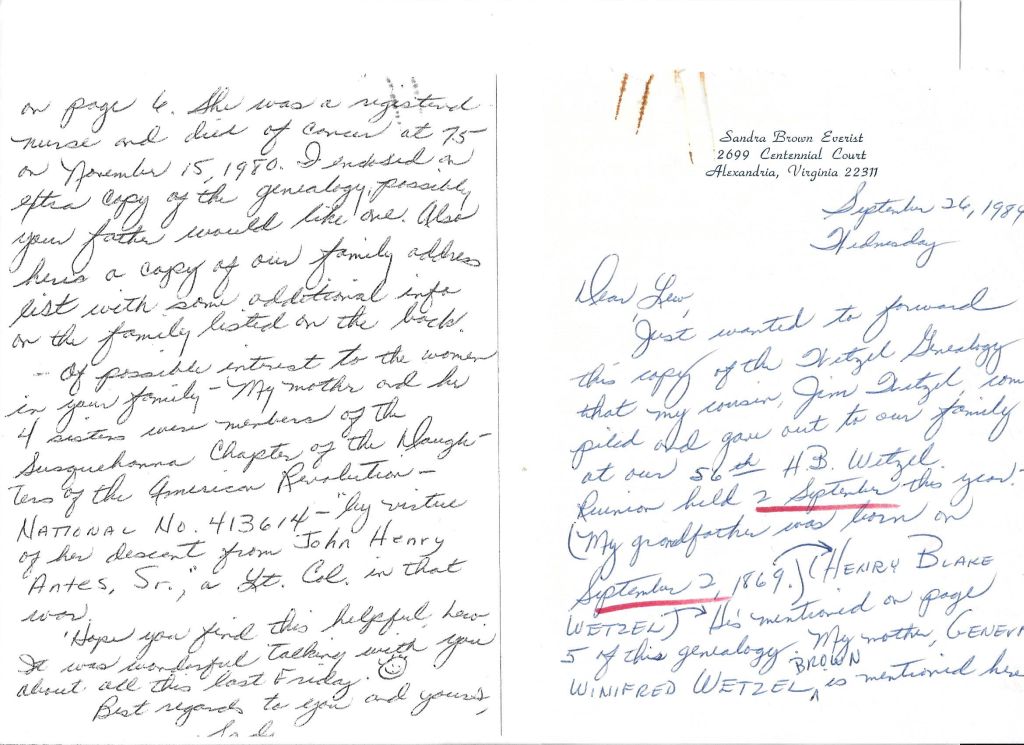 Sandra Brown Everist
2699 Centennial Court
Alexandria, Virginia 22311
September 26, 1984
Wednesday
Dear Lew,
Just wanted to forward
this copy of the Wetzel Genealogy
that my cousin, Jim Wetzel, com
piled and gave out to our family
at our 56th H.B. Wetzel
Reunion held 2 September this year.
(My grandfather was born on
September 2, 1869.) (HENRY BLAKE
WETZEL) He's mentioned on page
5 of this genealogy. My mother, GENEV
BROWN
WINIFRED WETZEL ^ is mentioned here
on page 6. She was a registered
nurse and died of cancer at 75
on November 15, 1980. I enclosed an
extra copy of the genealogy, possibly
your father would like one. Also
here's a copy of our family address
list with some additional info
on the family listed on the back.
- Of possible interest to the women
in your family - My mother and her
4 sisters were members of the
Susquehanna Chapter of the Daugh-
ters of the American Revolution -
NATIONAL NO. 413614 - "by virtue
of her descent from John Henry
Antes, Sr.," a Lt. Col. in that
war.
Hope you find this helpful, Lew.
It was wonderful talking with you
about all this last Friday.
Best regards to you and yours,